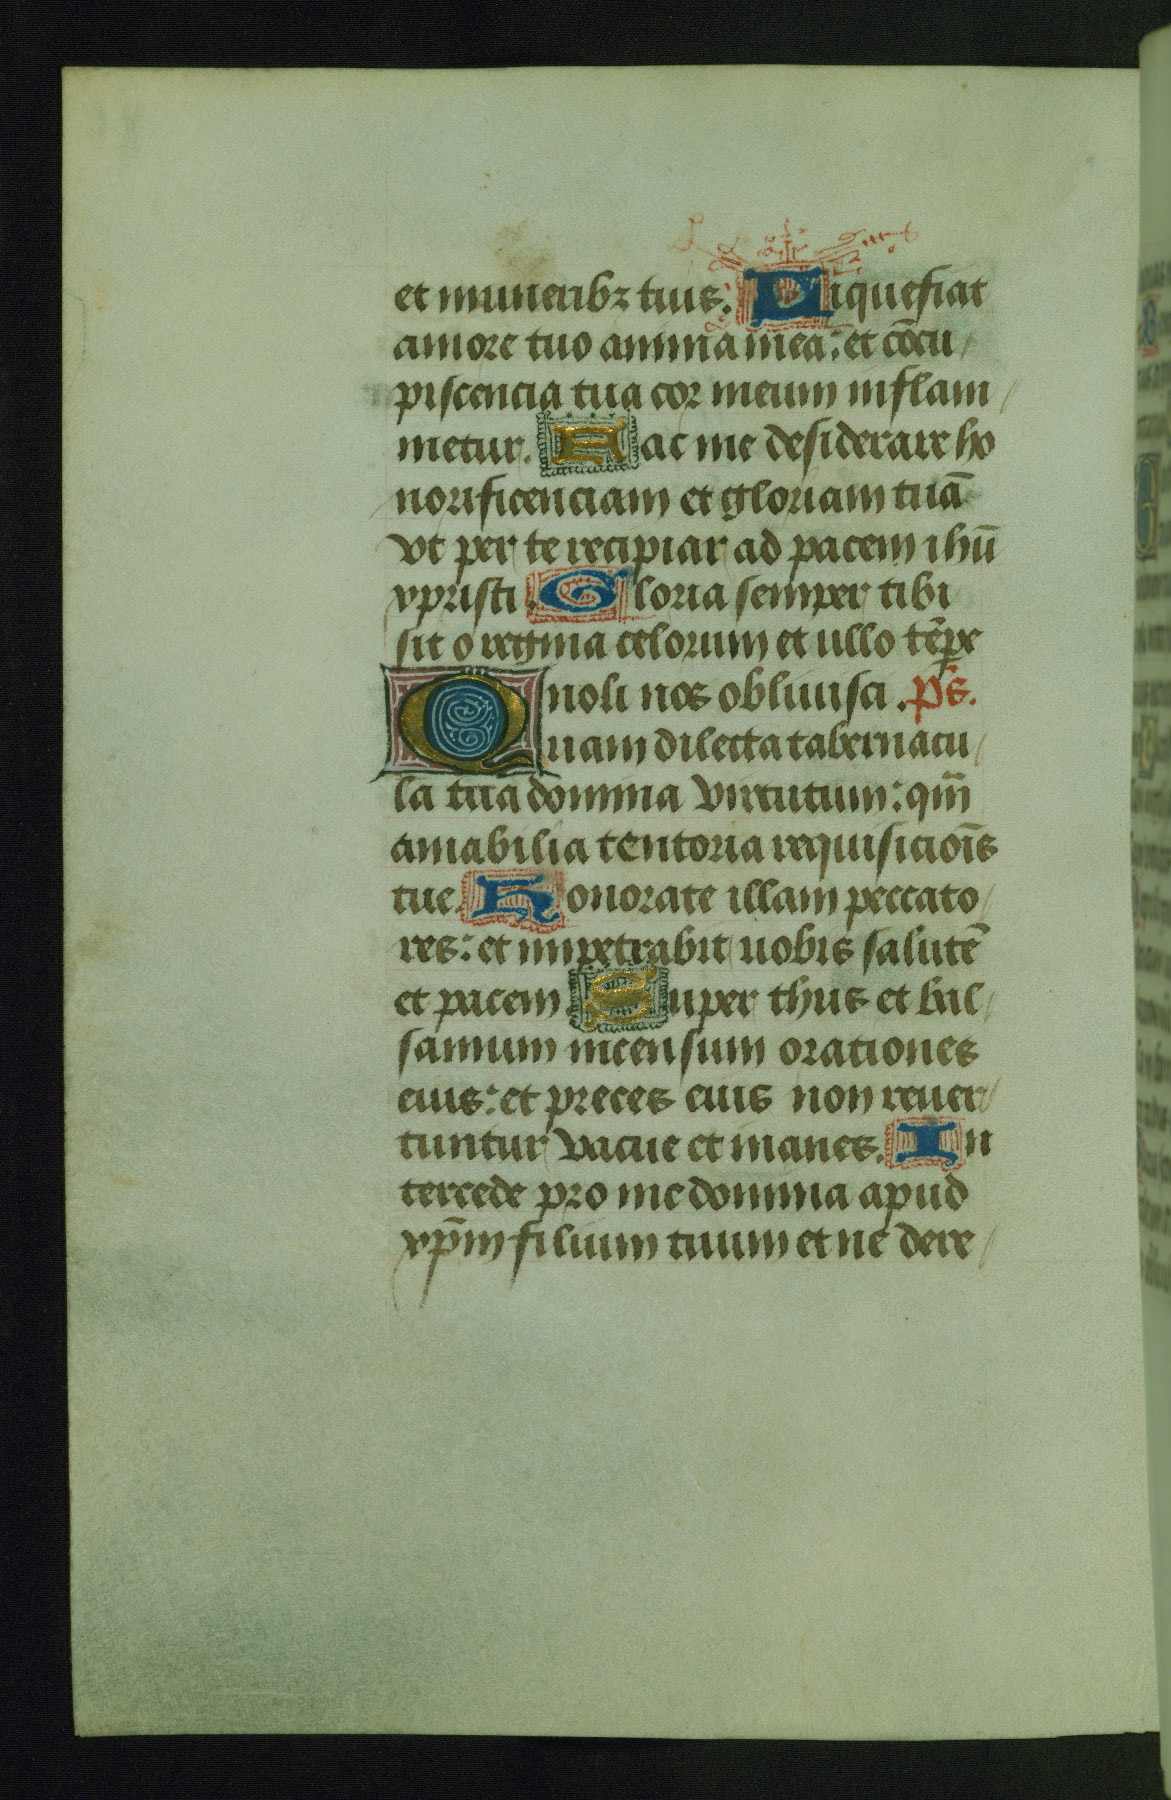 et muneribꝫ tuis: Liquefiat
amore tuo anima mea: et cōcu
piscencia tua cor meum inflam
metur. Fac me desiderare ho
norificenciam et gloriam tuā
vt per te recipiar ad pacem ihū
xpristi. Gloria semper tibi
sit o regina celorum et ullo tēpe
noli nos obliuisci. Ps.
Quam dilecta tabernacu
la tua domina virtutum: qm̄
amabilia tentoria requisicioīs
tue. Honorate illam peccato
res: et impetrabit uobis salutē
et pacem. Super thus et bal
samum incensum orationes
eius: et preces eius non reuer
tuntur vacue et inanes. In
tercede pro me domina apud
xp̄m filium tuum et ne dere